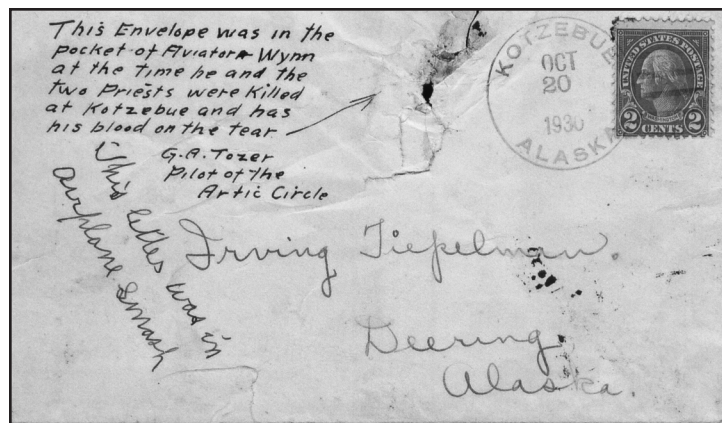 This Envelope was in the
pocket of Aviator Wynn
at the Time he and the
two Priests were Killed
at Kotzebue and has
his blood on the tear
G.A. Tozer
Pilot of The
Artic Circle
This letter was in
airplane smash
KOTZEBUE
OCT
20
1930
ALASKA
UNITED STATES POSTAGE
2 CENTS 2
Irving Tiepelman.
Deering,
Alaska.